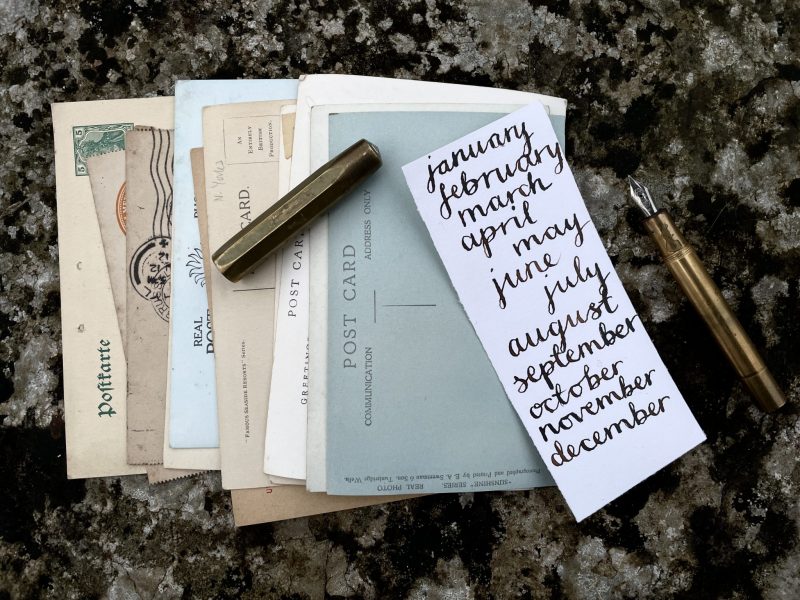 5
Postkarte
REAL
POST
N. Yorks
AN
ENTIRELY
BRITISH
PRODUCTION.
CARD.
"FAMOUS SEASIDE RESORTS" SERIES
POST CARD
GREETINGS
POST CARD
COMMUNICATION
ADDRESS ONLY
"SUNSHINE" SERIES. REAL PHOTO
Photographed and Printed by E. A. Sweetman & Son, Tunbridge Wells.
january
february
march
april
may
june
july
august
september
october
november
december